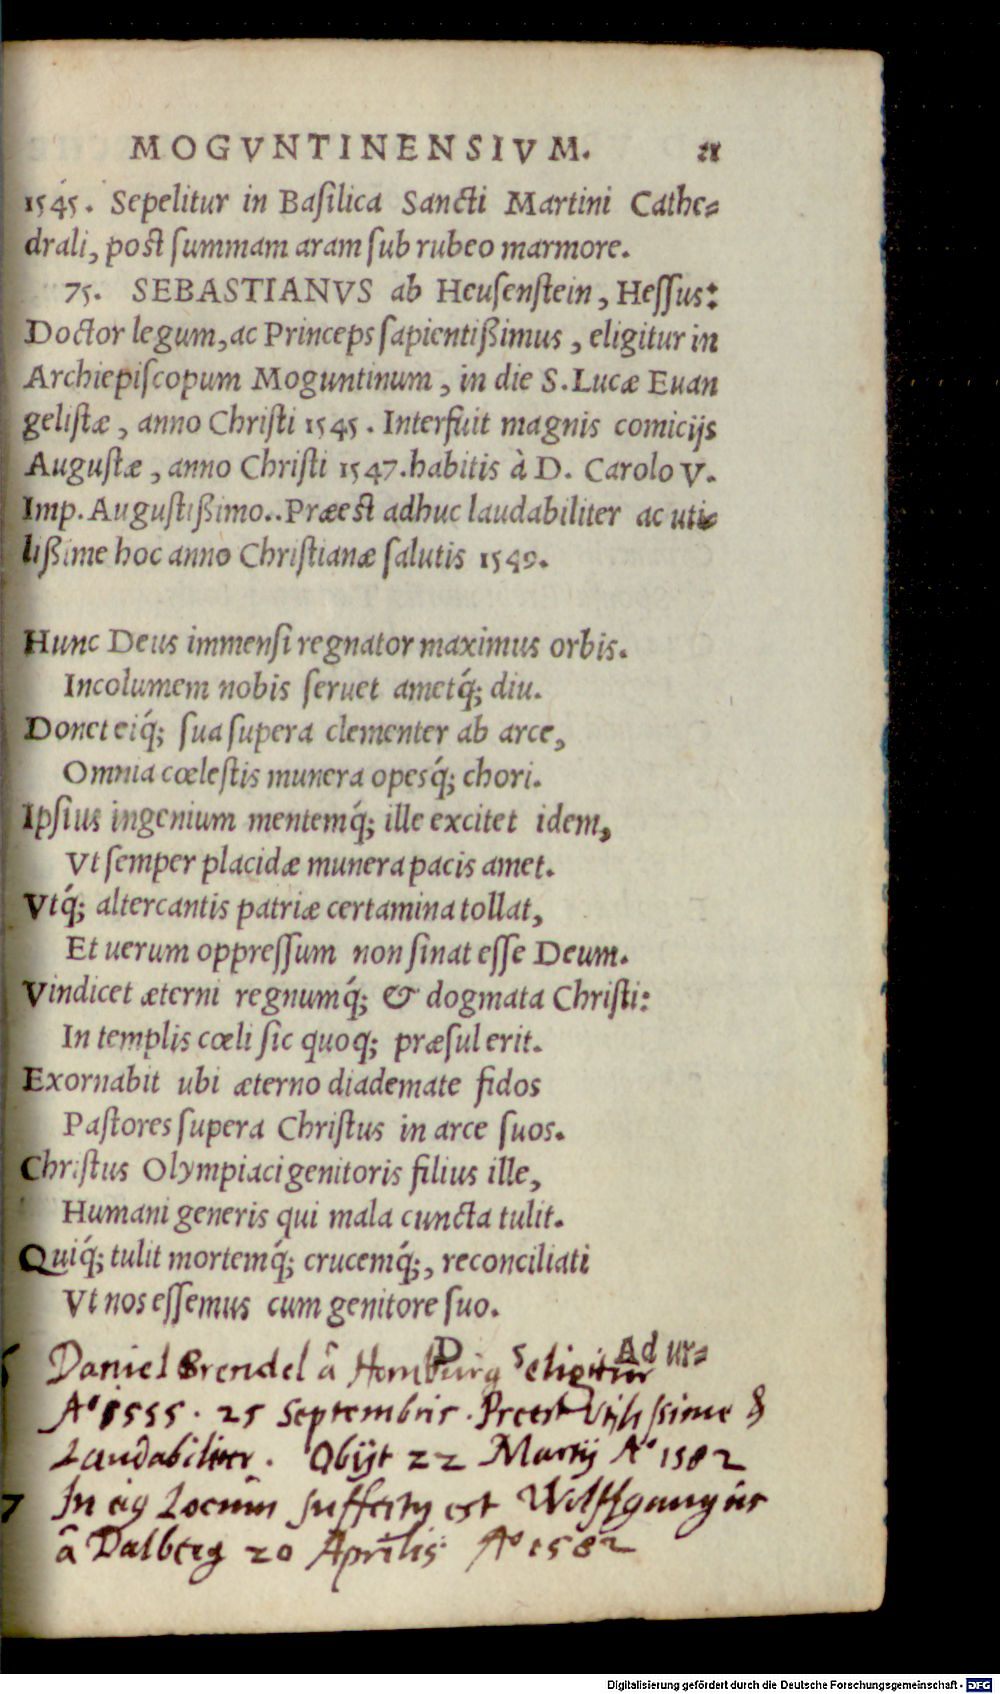 MOGVNTINENSIVM. 21
1545. Sepelitur in Basilica Sancti Martini Cathe=
drali, post summam aram sub rubeo marmore.
75. SEBASTIANVS ab Heusenstein, Hessus:
Doctor legum, ac Princeps sapientißimus, eligitur in
Archiepiscopum Moguntinum, in die S. Lucæ Euan
gelistæ, anno Christi 1545. Interfuit magnis comicijs
Augustæ, anno Christi 1547. habitis à D. Carolo V.
Imp. Augustißimo.. Præest adhuc laudabiliter ac uti=
lißime hoc anno Christianæ salutis 1549.
Hunc Deus immensi regnator maximus orbis.
Incolumem nobis seruet ametq́; diu.
Donet eiq́; sua supera clementer ab arce,
Omnia cœlestis munera opesq́; chori.
Ipsius ingenium mentemq́; ille excitet idem,
Vt semper placidæ munera pacis amet.
Vtq́; altercantis patriæ certamina tollat,
Et uerum oppressum non sinat esse Deum.
Vindicet æterni regnumq́; & dogmata Christi:
In templis cœli sic quoq; præsul erit.
Exornabit ubi æterno diademate fidos
Pastores supera Christus in arce suos.
Christus Olympiaci genitoris filius ille,
Humani generis qui mala cuncta tulit.
Quiq́; tulit mortemq́; crucemq́;, reconciliati
Vt nos essemus cum genitore suo.
D 5 Ad ur=
Daniel Brendel â Homburg eligitur
Aº 1555. 25 Septembris. Preest Vtilissime &
Laudabiliter. Obijt 22 Martij Aº 1582
7 In eig Locum suffectg est Wolffgangus
â Dalberg 20 Aprilis Aº 1582
Digitalisierung gefördert durch die Deutsche Forschungsgemeinschaft - DFG